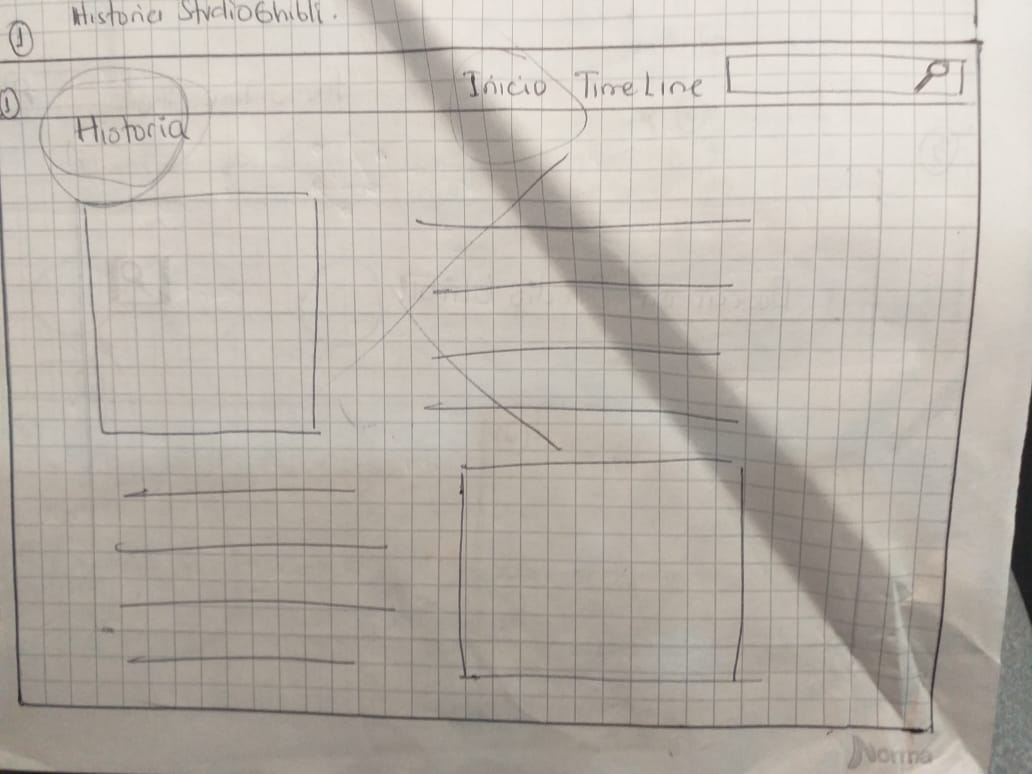 Historia Studio Ghibli.
1
Inicio TimeLine
1
Historia
Norma